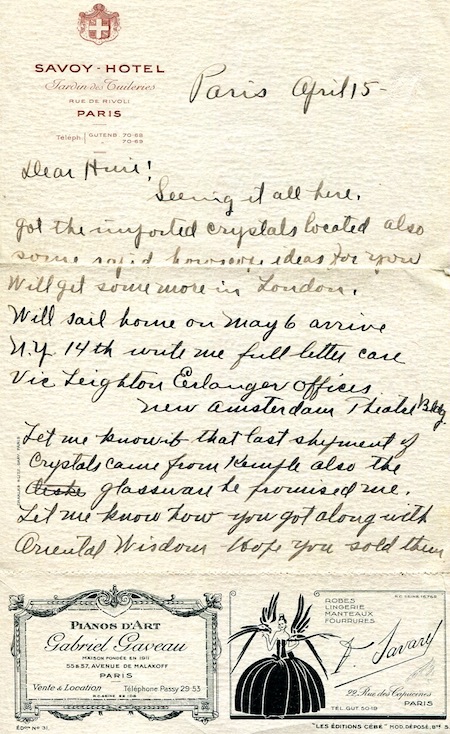 SAVOY-HOTEL
Jardin des Tuileries
RUE DE RIVOLI
PARIS
Téléph. GUTENB 70-68
70-69
Paris April 15-
Dear Huie!
Seeing it all here.
got the imported crystals located also
some horoscope ideas for you
Will get some more in London.
Will sail home on May 6 arrive
N.Y. 14th write me full letter care
Vic Leighton Erlanger offices
New Amsterdam Theatre Bldg
Let me know if that last shipment of
Crystals came from Kemple also the
glassware he promised me.
Let me know how you got along with
Oriental Wisdom hope you sold them
PIANOS D'ART
Gabriel Gaveau
MAISON FONDÉE EN 1911
55 & 57, AVENUE DE MALAKOFF
PARIS
Vente & Location Téléphone Passy 29-53
ÉDon No 31.
ROBES
LINGERIE
MANTEAUX
FOURRURES
Savary
22, Rue des Capucines
PARIS
TEL. GUT 50-19
"LES ÉDITIONS CÉBÉ" MOD. DÉPOSÉ,